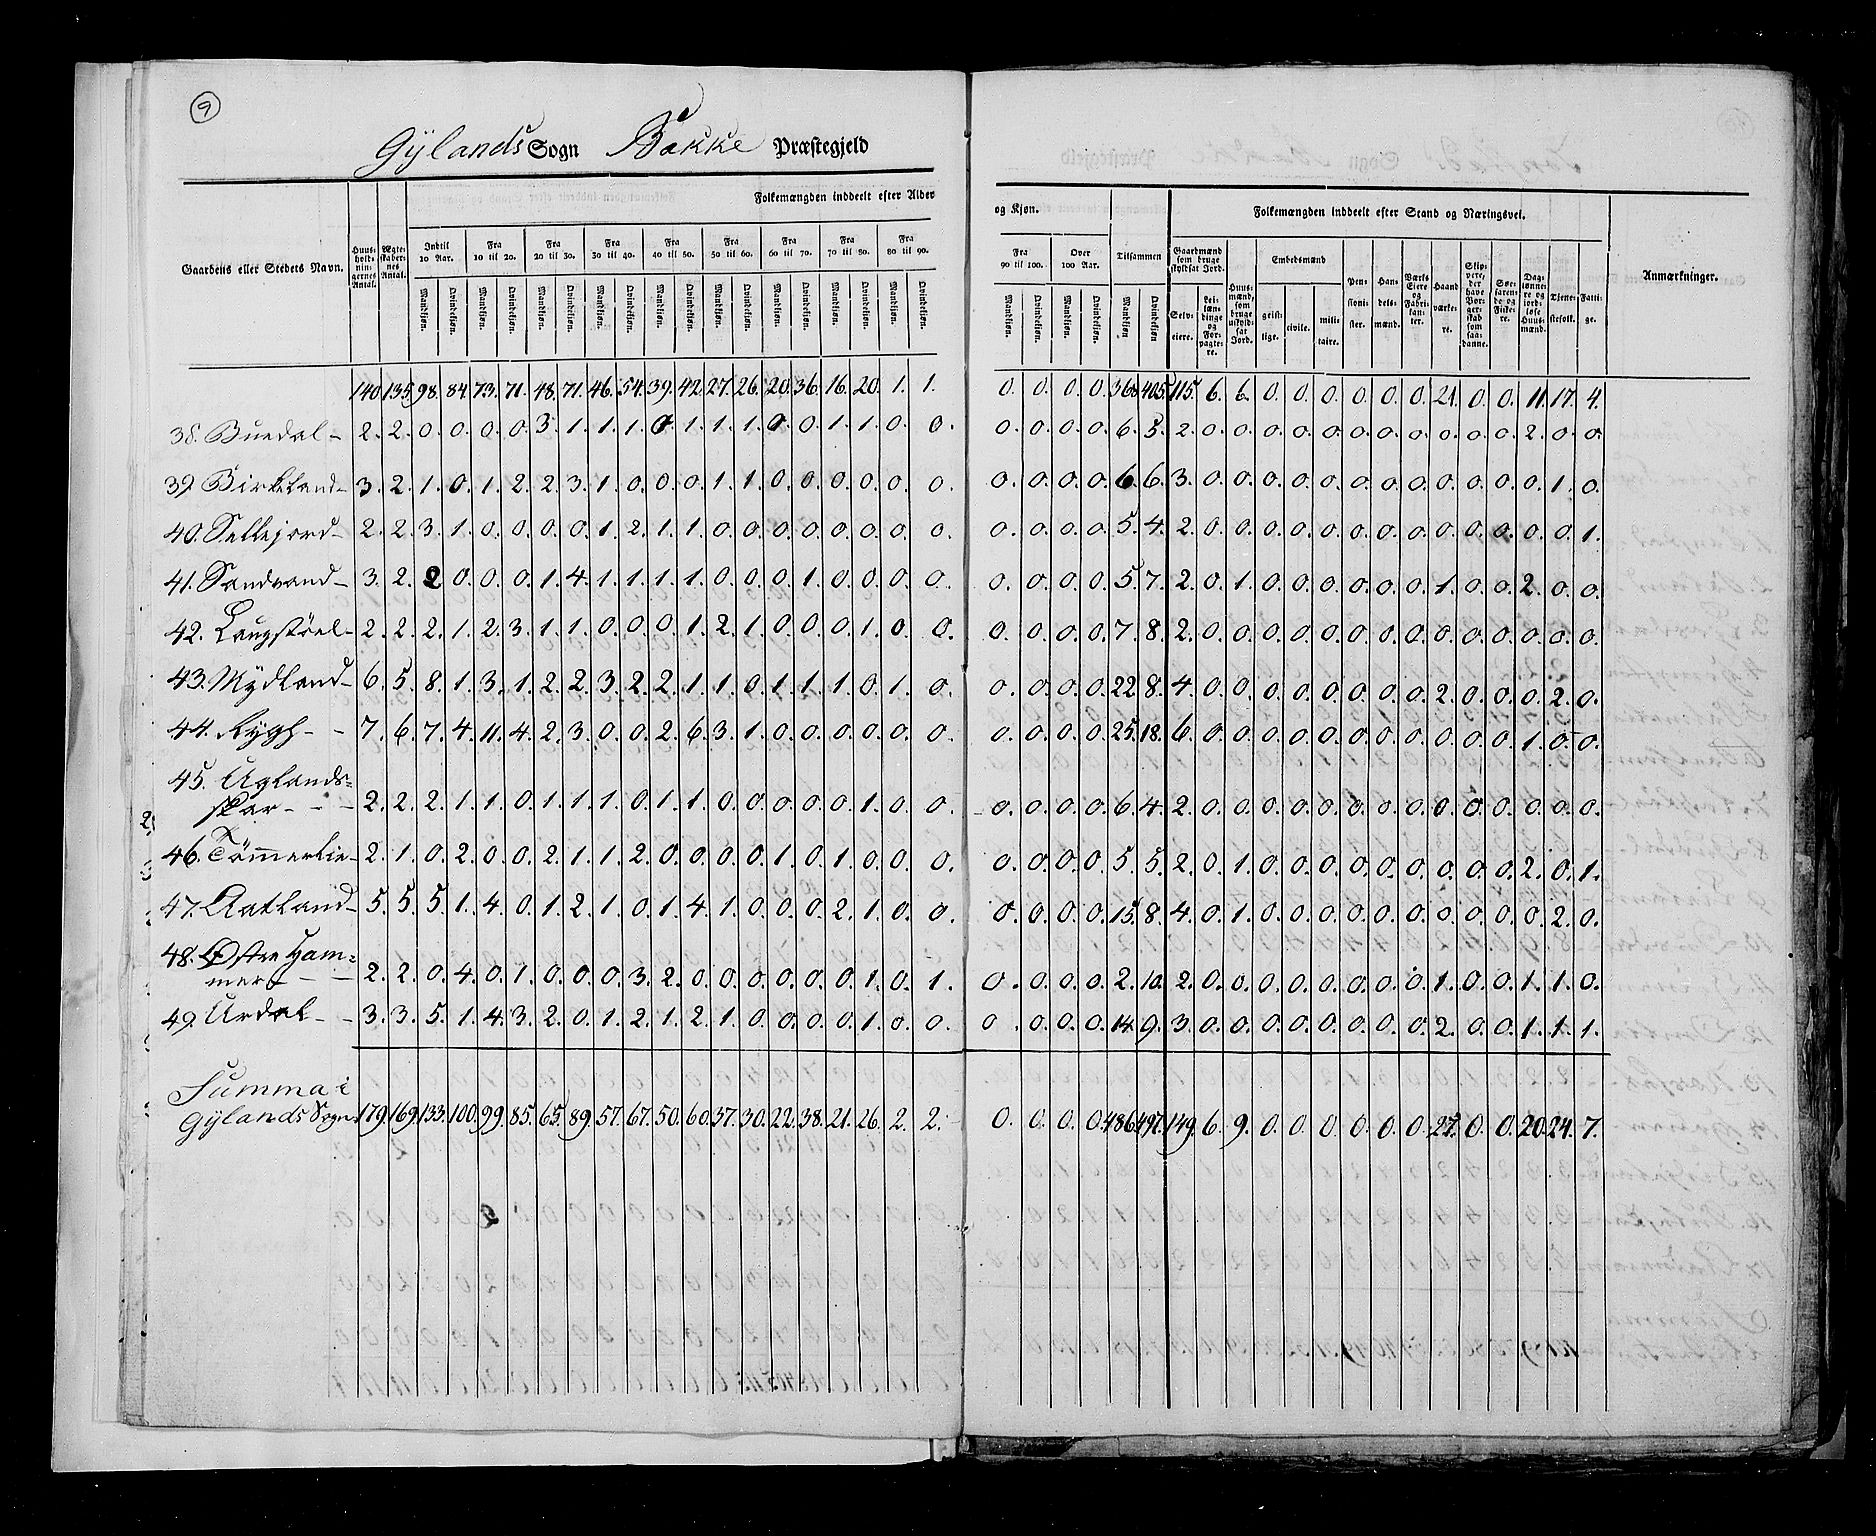 9
Gÿlands Sogn Bakke Præstegjeld
Gaardens eller Stedets Navn.
Huusholdningernes Antal.
Ægteskabernes Antal.
Folkemængden inddeelt efter Alder og Kjøn.
Indtil 10 Aar. Fra 10 til 20. Fra 20 til 30. Fra 30 til 40. Fra 40 til 50. Fra 50 til 60. Fra 60 til 70. Fra 70 til 80. Fra 80 til 90. Fra 90 til 100. Over 100 Aar. Tilsammen
Mandkjøn. Qvindekjøn. Mandkjøn. Qvindekjøn. Mandkjøn. Qvindekjøn. Mandkjøn. Qvindekjøn. Mandkjøn. Qvindekjøn. Mandkjøn. Qvindekjøn. Mandkjøn. Qvindekjøn. Mandkjøn. Qvindekjøn. Mandkjøn. Qvindekjøn. Mandkjøn. Qvindekjøn. Mandkjøn. Qvindekjøn. Mandkjøn Qvindekjøn.
Folkemængden inddeelt efter Stand og Næringsvei.
Gaardmænd som bruge skyldsat Jord. Selveiere. Leilændinge og Forpagtere.
Huusmænd, som bruge uskyldsat Jord.
Embedsmænd geistlige. civile. militaire.
Pensionister.
Handelsmænd.
Værks Eiere og Fabrikanter.
Haandværkere.
Skippere, der have Borgerskab som saadanne.
Søefarende og Fiskere.
Daglønnere og jordløse Huusmænd.
Tjenestefolk.
Fattige.
Anmærkninger.
140. 135. 98. 84. 73. 71. 48. 71. 46. 54. 39. 42. 27. 26. 20. 36. 16. 20. 1. 1. 0. 0. 0. 0. 368 405. 115. 6. 6. 0. 0. 0. 0. 0. 0. 21. 0. 0. 11. 17. 4.
38. Buedal - 2. 2. 0. 0. 0. 0. 3. 1. 1. 1. 0. 1. 1. 1. 0. 0. 1. 1. 0. 0. 0. 0. 0. 0. 6. 5. 2. 0. 0. 0. 0. 0. 0. 0. 0. 0. 0. 0. 2. 0. 0.
39. Birkeland - 3. 2. 1. 0. 1. 2. 2. 3. 1. 0. 0. 0. 1. 1. 0. 0. 0. 0. 0. 0. 0. 0. 0. 0. 6. 6. 3. 0. 0. 0. 0. 0. 0. 0. 0. 0. 0. 0. 0. 1. 0.
40. Sellejord - 2. 2. 3. 1. 0. 0. 0. 0. 1. 2. 1. 1. 0. 0. 0. 0. 0. 0. 0. 0. 0. 0. 0. 0. 5. 4. 2. 0. 0. 0. 0. 0. 0. 0. 0. 0. 0. 0. 0. 0. 1.
41. Sandvand - 3. 2. 2 0. 0. 0. 1. 4. 1. 1. 1. 1. 0. 0. 0. 1. 0. 0. 0. 0. 0. 0. 0. 0. 5. 7. 2. 0. 1. 0. 0. 0. 0. 0. 0. 1. 0. 0. 2. 0. 0.
42. Laugstöel - 2. 2. 2. 1. 2. 3. 1. 1. 0. 0. 0. 1. 2. 1. 0. 0. 0. 1. 0. 0. 0. 0. 0. 0. 7. 8. 2. 0. 0. 0. 0. 0. 0. 0. 0. 0. 0. 0. 0. 0. 0.
43. Mydland - 6. 5. 8. 1. 3. 1. 2. 2. 3. 2. 2. 1. 1. 0. 1. 1. 1. 0. 1. 0. 0. 0. 0. 0. 22. 8. 4. 0. 0. 0. 0. 0. 0. 0. 0. 2. 0. 0. 0. 2. 0.
44. Rygh - - 7. 6. 7. 4. 11. 4. 2. 3. 0. 0. 2. 6. 3. 1. 0. 0. 0. 0. 0. 0. 0. 0. 0. 0. 25. 18. 6. 0. 0. 0. 0. 0. 0. 0. 0. 0. 0. 0. 1. 0. 0.
45. Uglands=
skar - - - 2. 2. 2. 1. 1. 0. 1. 1. 1. 0. 1. 1. 0. 0. 0. 0. 0. 1. 0. 0. 0. 0. 0. 0. 6. 4. 2. 0. 0. 0. 0. 0. 0. 0. 0. 0. 0. 0. 0. 0. 0.
46. Tömmerlie - 2. 1. 0. 2. 0. 0. 2. 1. 1. 2. 0. 0. 0. 0. 1. 0. 1. 0. 0. 0. 0. 0. 0. 0. 5. 5. 2. 0. 1. 0. 0. 0. 0. 0. 0. 0. 0. 0. 2. 0. 1.
47. Aatland - 5. 5. 5. 1. 4. 0. 1. 2. 1. 0. 1. 4. 1. 0. 0. 0. 2. 1. 0. 0. 0. 0. 0. 0. 15. 8. 4. 0. 1. 0. 0. 0. 0. 0. 0. 0. 0. 0. 0. 2. 0.
48. Østre Ham=
mer - - 2. 2. 0. 4. 0. 1. 0. 0. 0. 3. 2. 0. 0. 0. 0. 0. 0. 1. 0. 1. 0. 0. 0. 0. 2. 10. 2. 0. 0. 0. 0. 0. 0. 0. 0. 1. 0. 0. 1. 1. 0.
49. Urdal - - 3. 3. 5. 1. 4. 3. 2. 0. 1. 2. 1. 2. 1. 0. 0. 0. 0. 1. 0. 0. 0 0. 0. 0. 14. 9. 3. 0. 0. 0. 0. 0. 0. 0. 0. 2. 0. 0. 1. 1. 1.
Summa i
Gÿlands Sogn 179. 169. 133. 100. 99. 85. 65. 89. 57. 67. 50. 60. 37. 30. 22. 38. 21. 26. 2. 2. 0. 0. 0. 0. 486 497. 149. 6. 9. 0. 0. 0. 0. 0. 0. 27. 0. 0. 20. 24. 7.